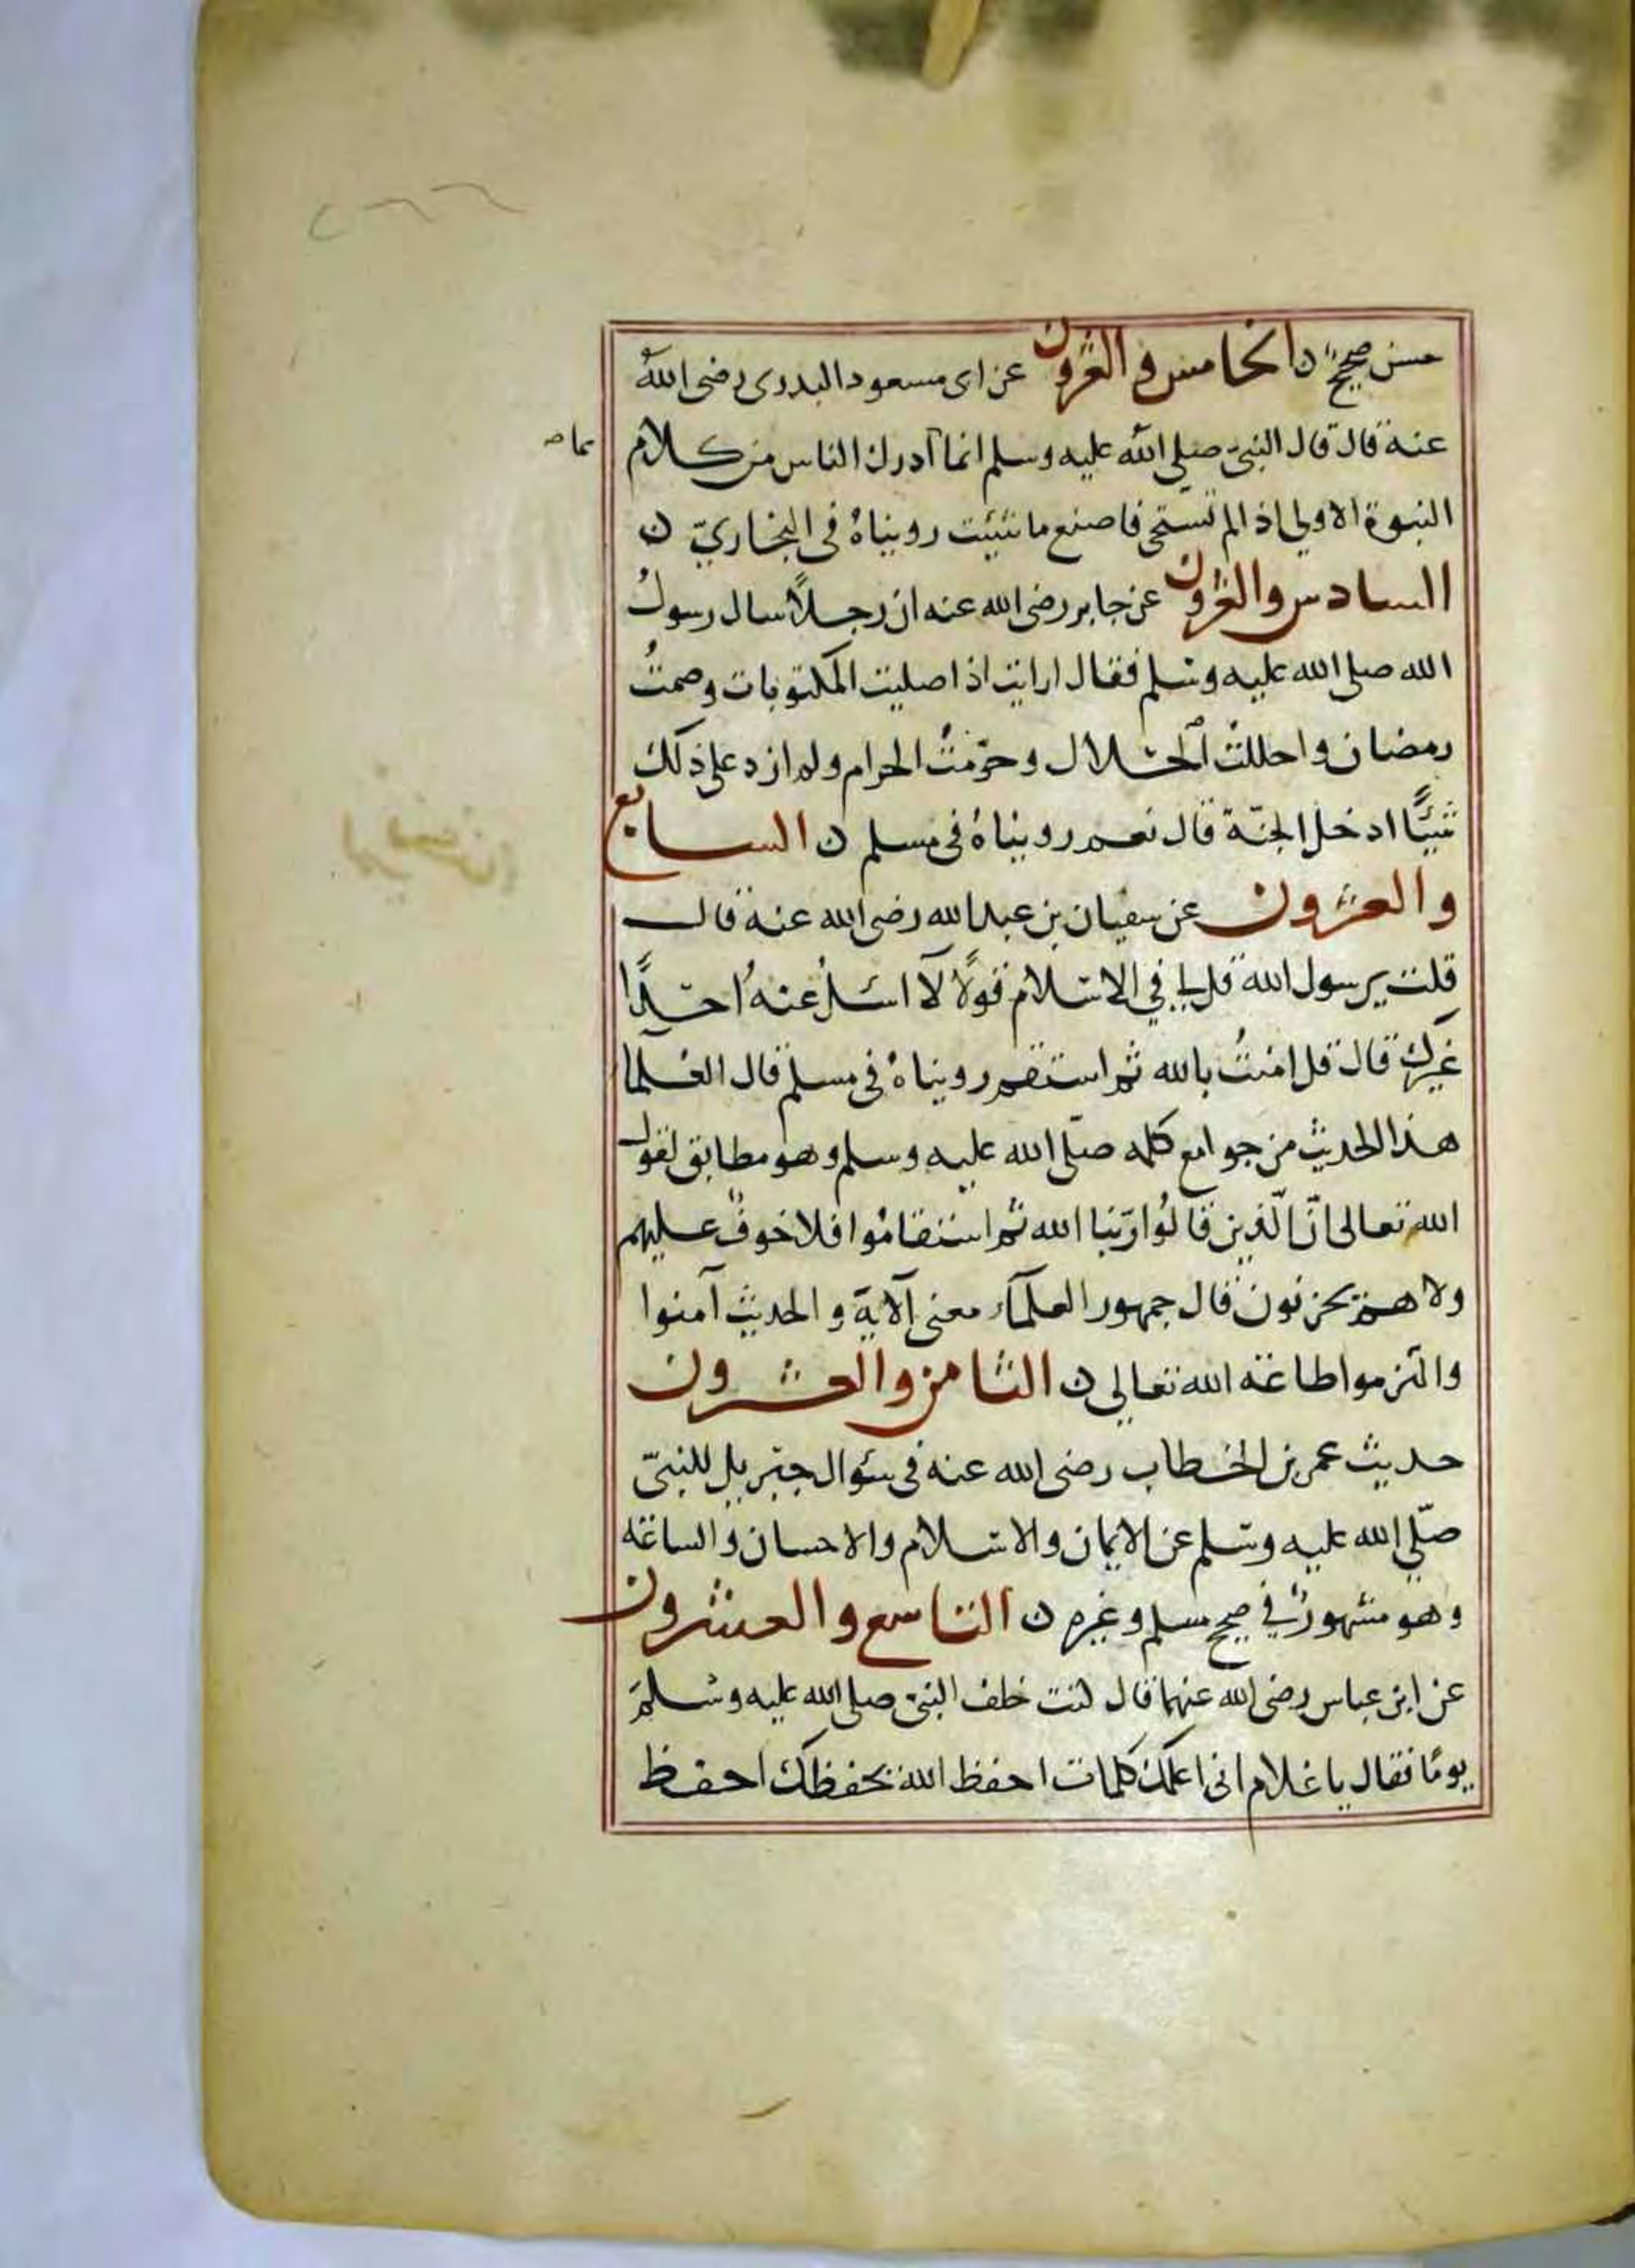 ٢٦٦
حسن صحيحٌ ن الخامس والعشرون عن ابى مسعود البدرى رضى اللهُ
عنه قال قال النبى صلى الله عليه وسلم انما ادرك الناس من كلام
مما صح
النبوة الاولى اذا لم تستحى فاصنع ما شئت رويناهُ فى البخاريّ ن
السادس والعشرون عن جابر رضى الله عنه ان رجلاً سال رسولُ
الله صلى الله عليه وسلم فقال ارايت اذا صليت المكتوبات وصمتُ
رمضان واحللتُ الحلال وحرّمتُ الحرام ولم ازد على ذلك
شيئًا ادخل الجنّة قال نعم رويناهُ فى مسلم ن السابع
والعشرون عن سفيان بن عبد الله رضى الله عنه قال
قلت يرسول الله قل لى في الاسلام قولاً لا اسئلُ عنه احدًا
غيرك قال قل امنتُ بالله ثم استقم رويناهُ فى مسلم قال العلما
هذا الحديث من جوامع كلمه صلّى الله عليه وسلم وهو مطابق لقول
الله تعالى انّ الّذين قالُوا ربّنا الله ثم استقامُوا فلا خوفٌ عليهم
ولا هم يحزنون قال جمهور العلمآء معنى الآية والحديث آمنوا
والتزموا طاعة الله تعالى ن الثامن والعشرون
حديث عمر بن الخطاب رضى الله عنه فى سؤال جبريل للنبىّ
صلّى الله عليه وسلم عن الايمان والاسلام والاحسان والساعة
وهو مشهورٌ في صحيح مسلم وغيره ن التاسع والعشرون
عن ابن عباس رضى الله عنهما قال كنت خلف النبى صلى الله عليه وسلمَ
يومًا فقال يا غلام انى اعلمك كلمات احفظ الله يحفظك احفظ